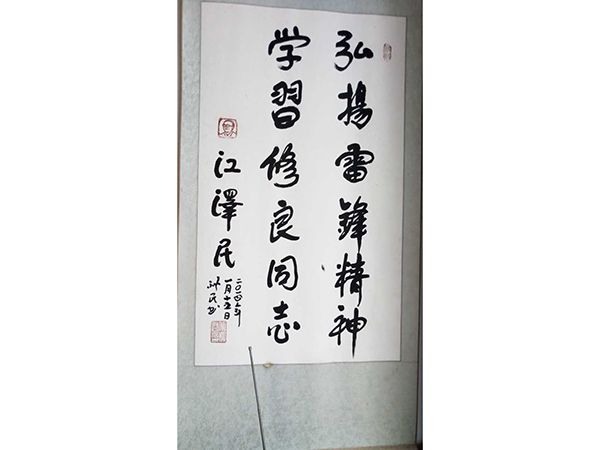 弘揚雷鋒精神
学習修良同志
江澤民
二〇一四年
一月十五日